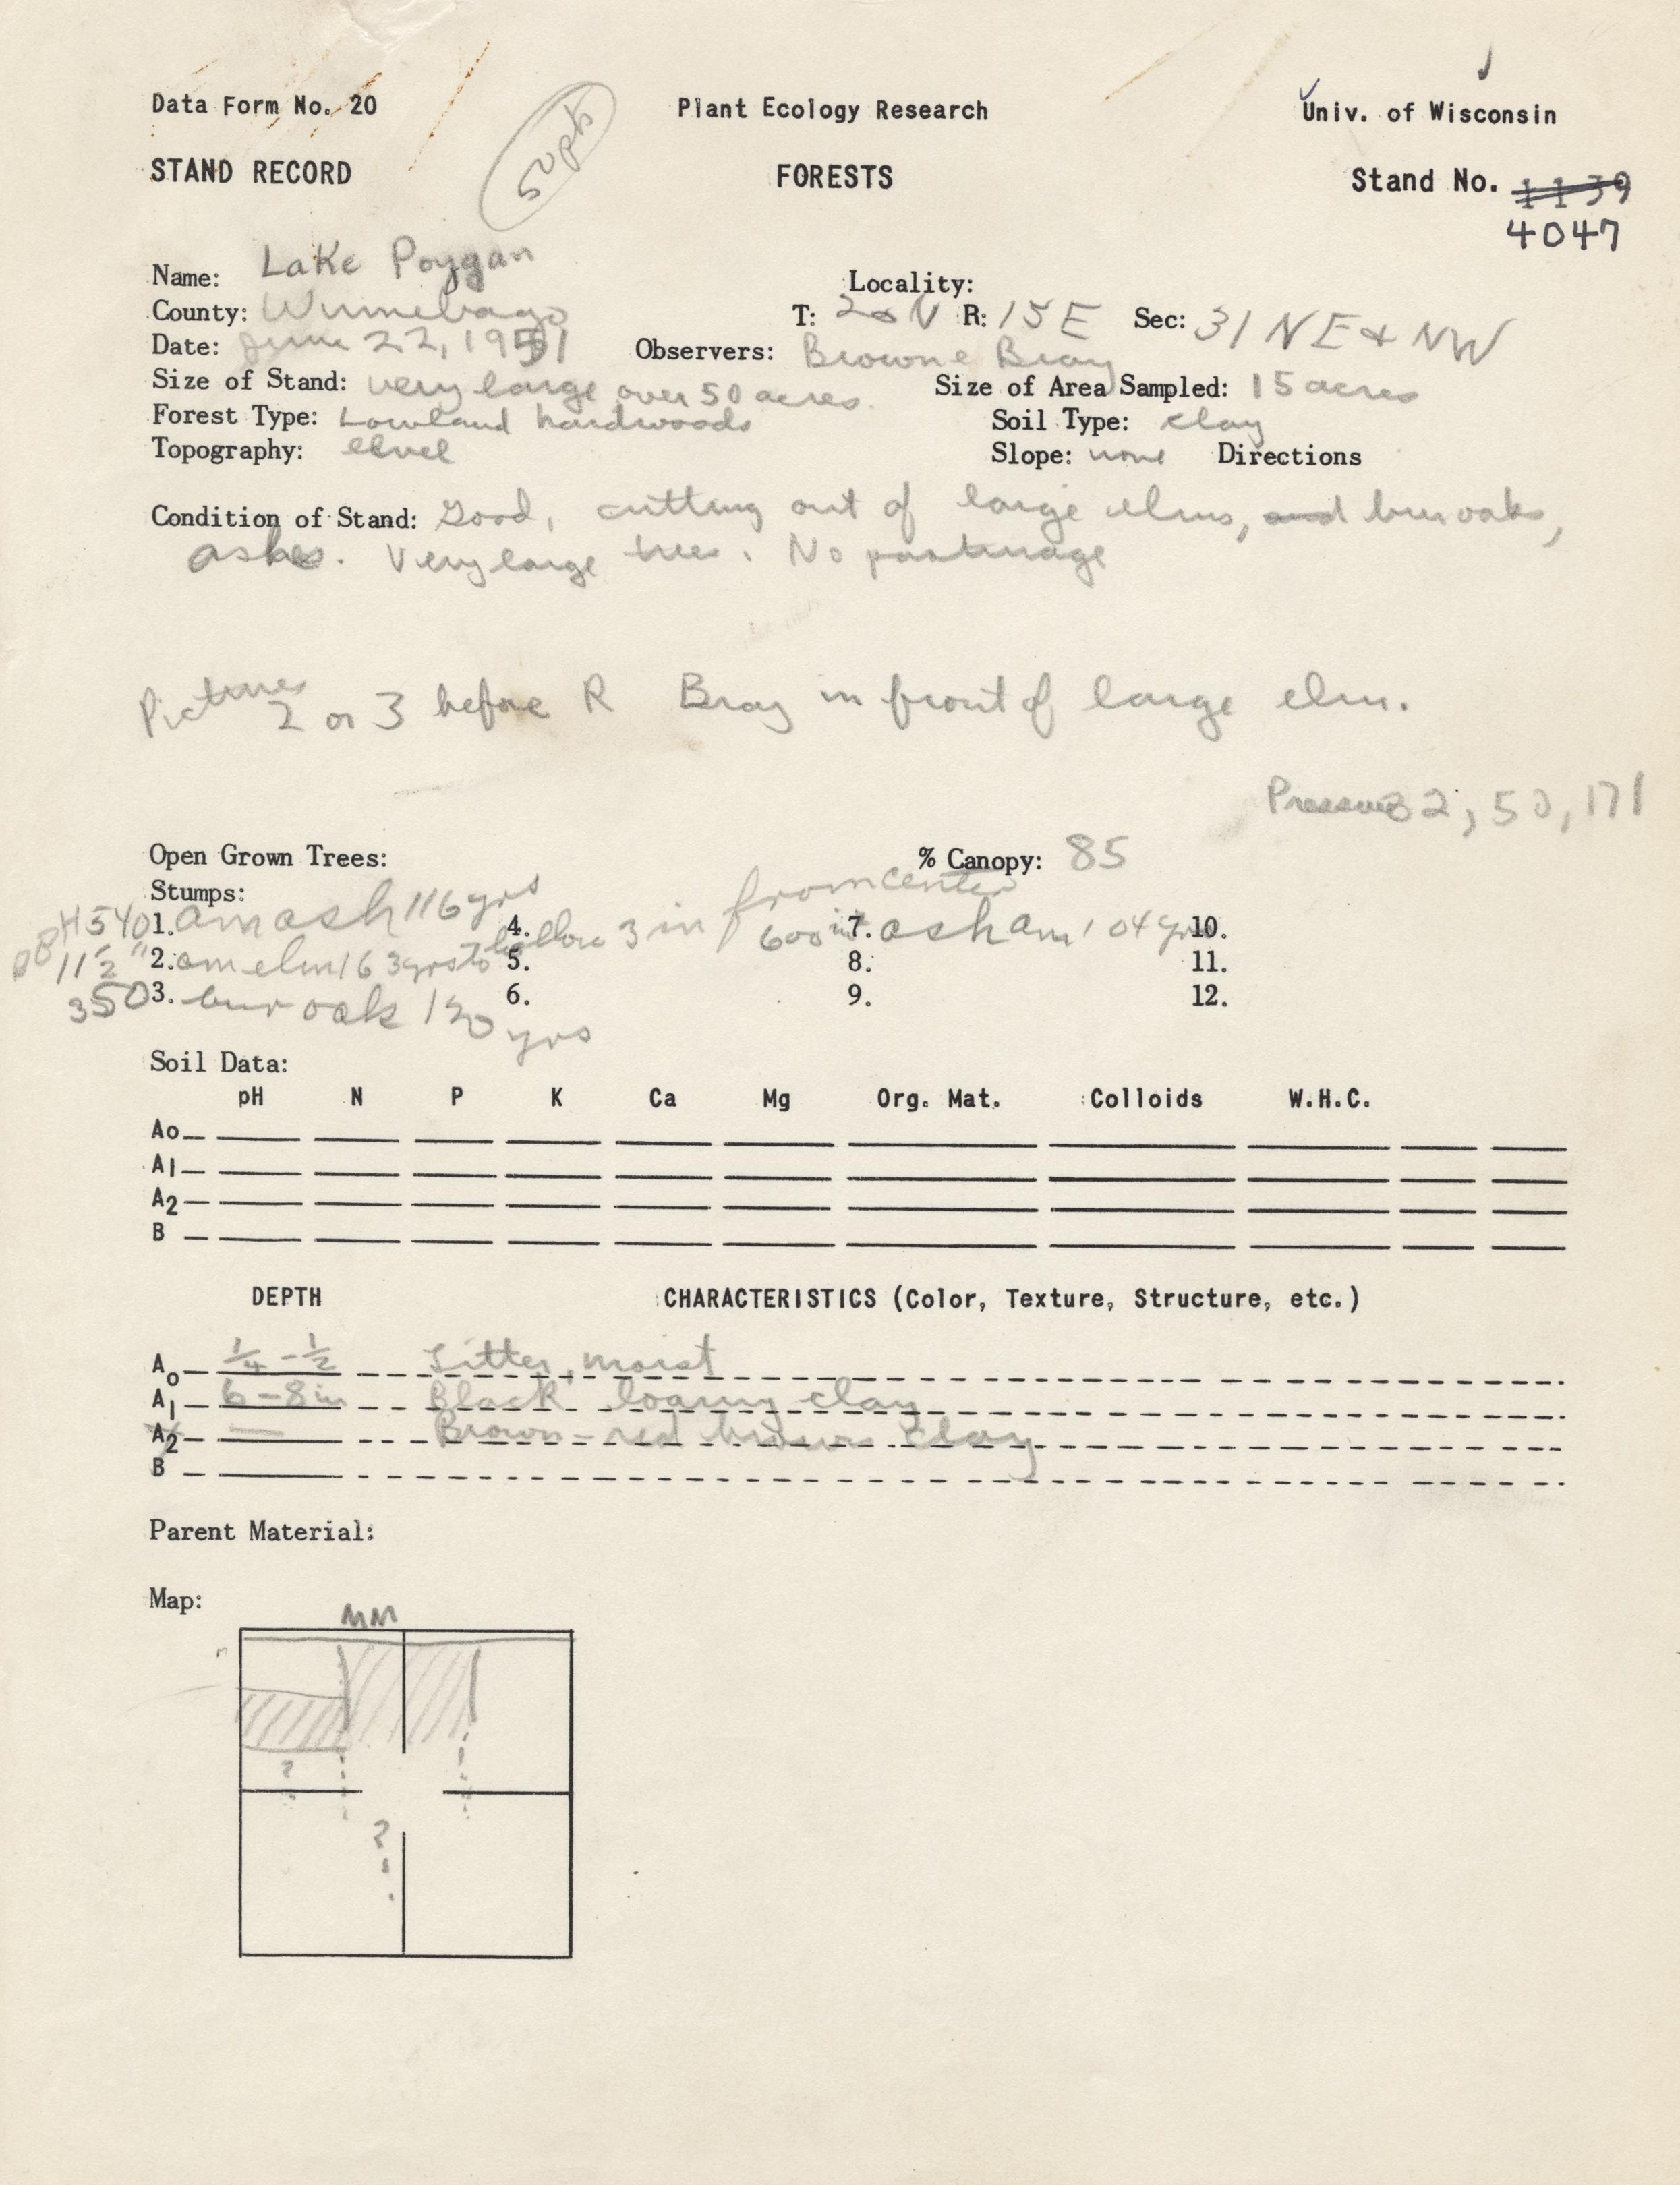 Data Form No. 20 Plant Ecology Research Univ. of Wisconsin
50 pts
STAND RECORD FORESTS Stand No. 1139
4047
Name: Lake Poygan Locality:
County: Winnebago T: 20 N R: 15 E Sec: 31 NE & NW
Date: June 22, 1951 Observers: Browne Bray
Size of Stand: very large over 50 acres. Size of Area Sampled: 15 acres
Forest Type: Lowland hardwoods Soil Type: clay
Topography: level Slope: none Directions
Condition of Stand: Good, cutting out of large elms, and bur oaks,
ashes. Very large trees. No pasturage
Pictures 2 or 3 before R Bray in front of large elm.
32, 50, 171
Open Grown Trees: % Canopy: 85
Stumps: from center
H 540 1. am ash 116 yrs 4. hollow 3 in 600 in 7. ash am 104 yrs 10.
11 1/2" 2. am elm 163 yrs to 5. 8. 11.
350 3. bur oak 130 yrs 6. 9. 12.
Soil Data:
pH N P K Ca Mg Org. Mat. Colloids W.H.C.
Ao
A1
A2
B
DEPTH CHARACTERISTICS (Color, Texture, Structure, etc.)
Ao 1/4 - 1/2 Litter, moist
A1 6-8 in Black loamy clay
A2 — Brown-red brown clay
B
Parent Material:
Map:
MM
?
?